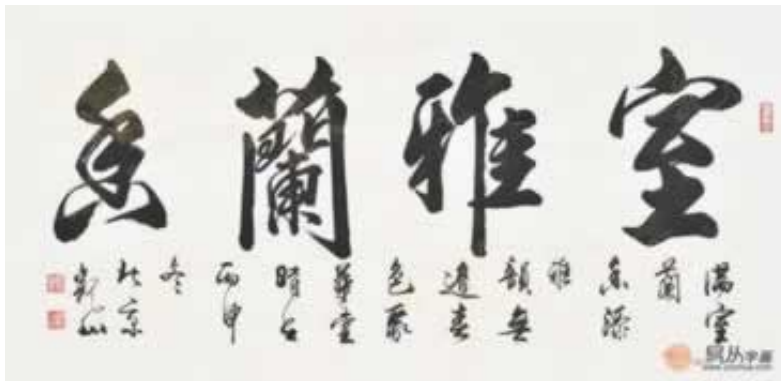 室雅蘭香
滿室
蘭
香添
雅
韻無
邊春
色聚
華堂
丙申
冬
北京
易从字画